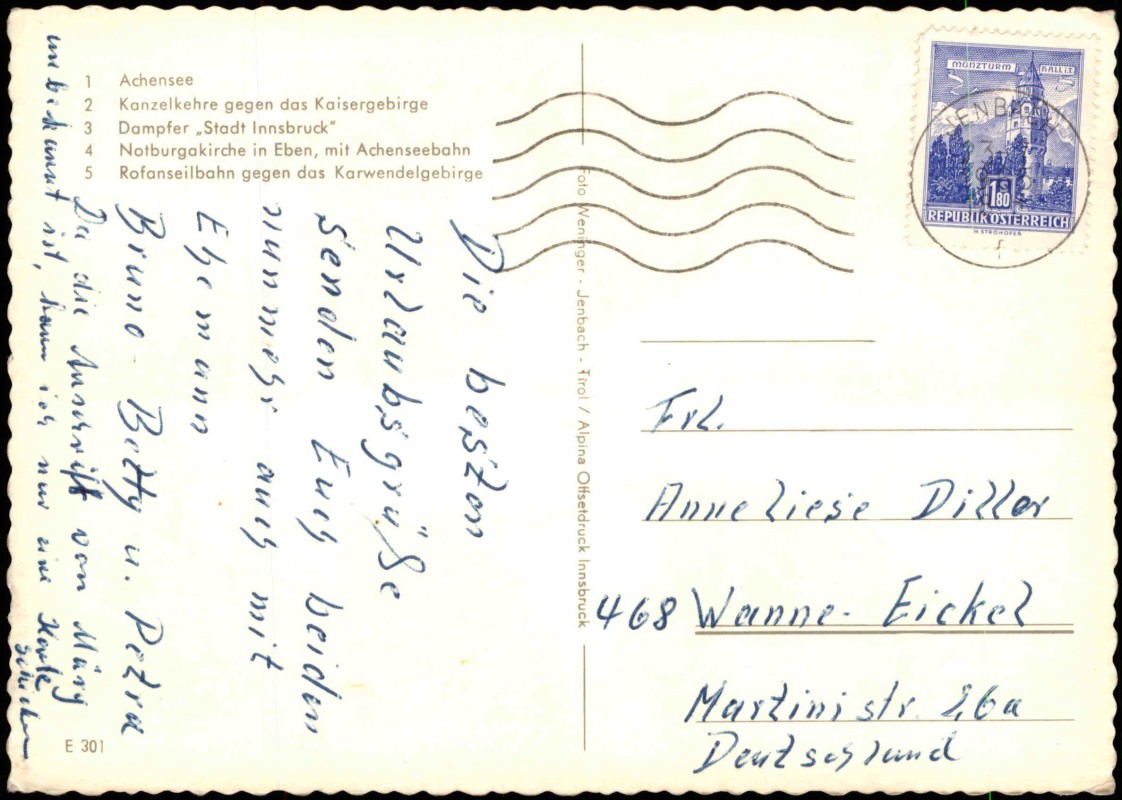 1 Achensee
2 Kanzelkehre gegen das Kaisergebirge
3 Dampfer „Stadt Innsbruck"
4 Notburgakirche in Eben, mit Achenseebahn
5 Rofanseilbahn gegen das Karwendelgebirge
Die besten
Urlaubsgrüße
senden Euch beiden
nunmehr auch mit
Ehemann
Bruno Betty u. Petra
Da die Anschrift von
unbekannt ist, kann ich nur eine Karte
schicken
E 301
Foto Weninger - Jenbach - Tirol / Alpina Offsetdruck Innsbruck
MÜNZTURM HALL i.T.
1.80 S
REPUBLIK ÖSTERREICH
H. STROHOFER
Frl.
Anneliese Diller
468 Wanne-Eickel
Martinistr. 26a
Deutschland